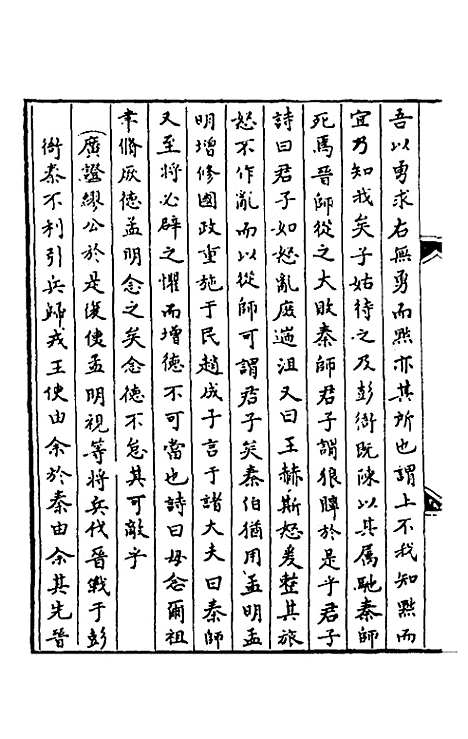 吾以勇求右無勇而黜亦其所也謂上不我知黜而
宜乃知我矣子姑待之及彭衙既陳以其属馳秦師
死焉晉師從之大敗秦師君子謂狼瞫於是乎君子
詩曰君子如怒亂庶遄沮又曰王赫斯怒爰整其旅
怒不作亂而以從師可謂君子矣秦伯猶用孟明孟
明增修國政重施于民趙成子言于諸大夫曰秦師
又至將必辟之懼而增德不可當也詩曰毋念爾祖
聿脩厥德孟明念之矣念德不怠其可敵乎
（廣證繆公於是復使孟明視等將兵伐晉戰于彭
衙秦不利引兵歸戎王使由余於秦由余其先晉